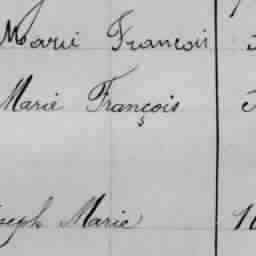 Marie François
Marie François
seph Marie 10